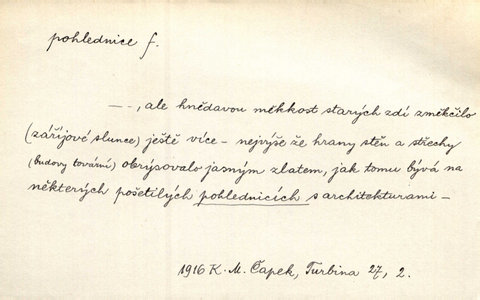 pohlednice f.
– –, ale hnědavou měkkost starých zdí změkčilo
(zářijové slunce) ještě více – nejvýše že hrany stěn a střechy
(budovy tovární) obrýsovalo jasným zlatem, jak tomu bývá na
některých pošetilých pohlednicích s architekturami –
1916 K. M. Čapek, Turbina 27, 2.